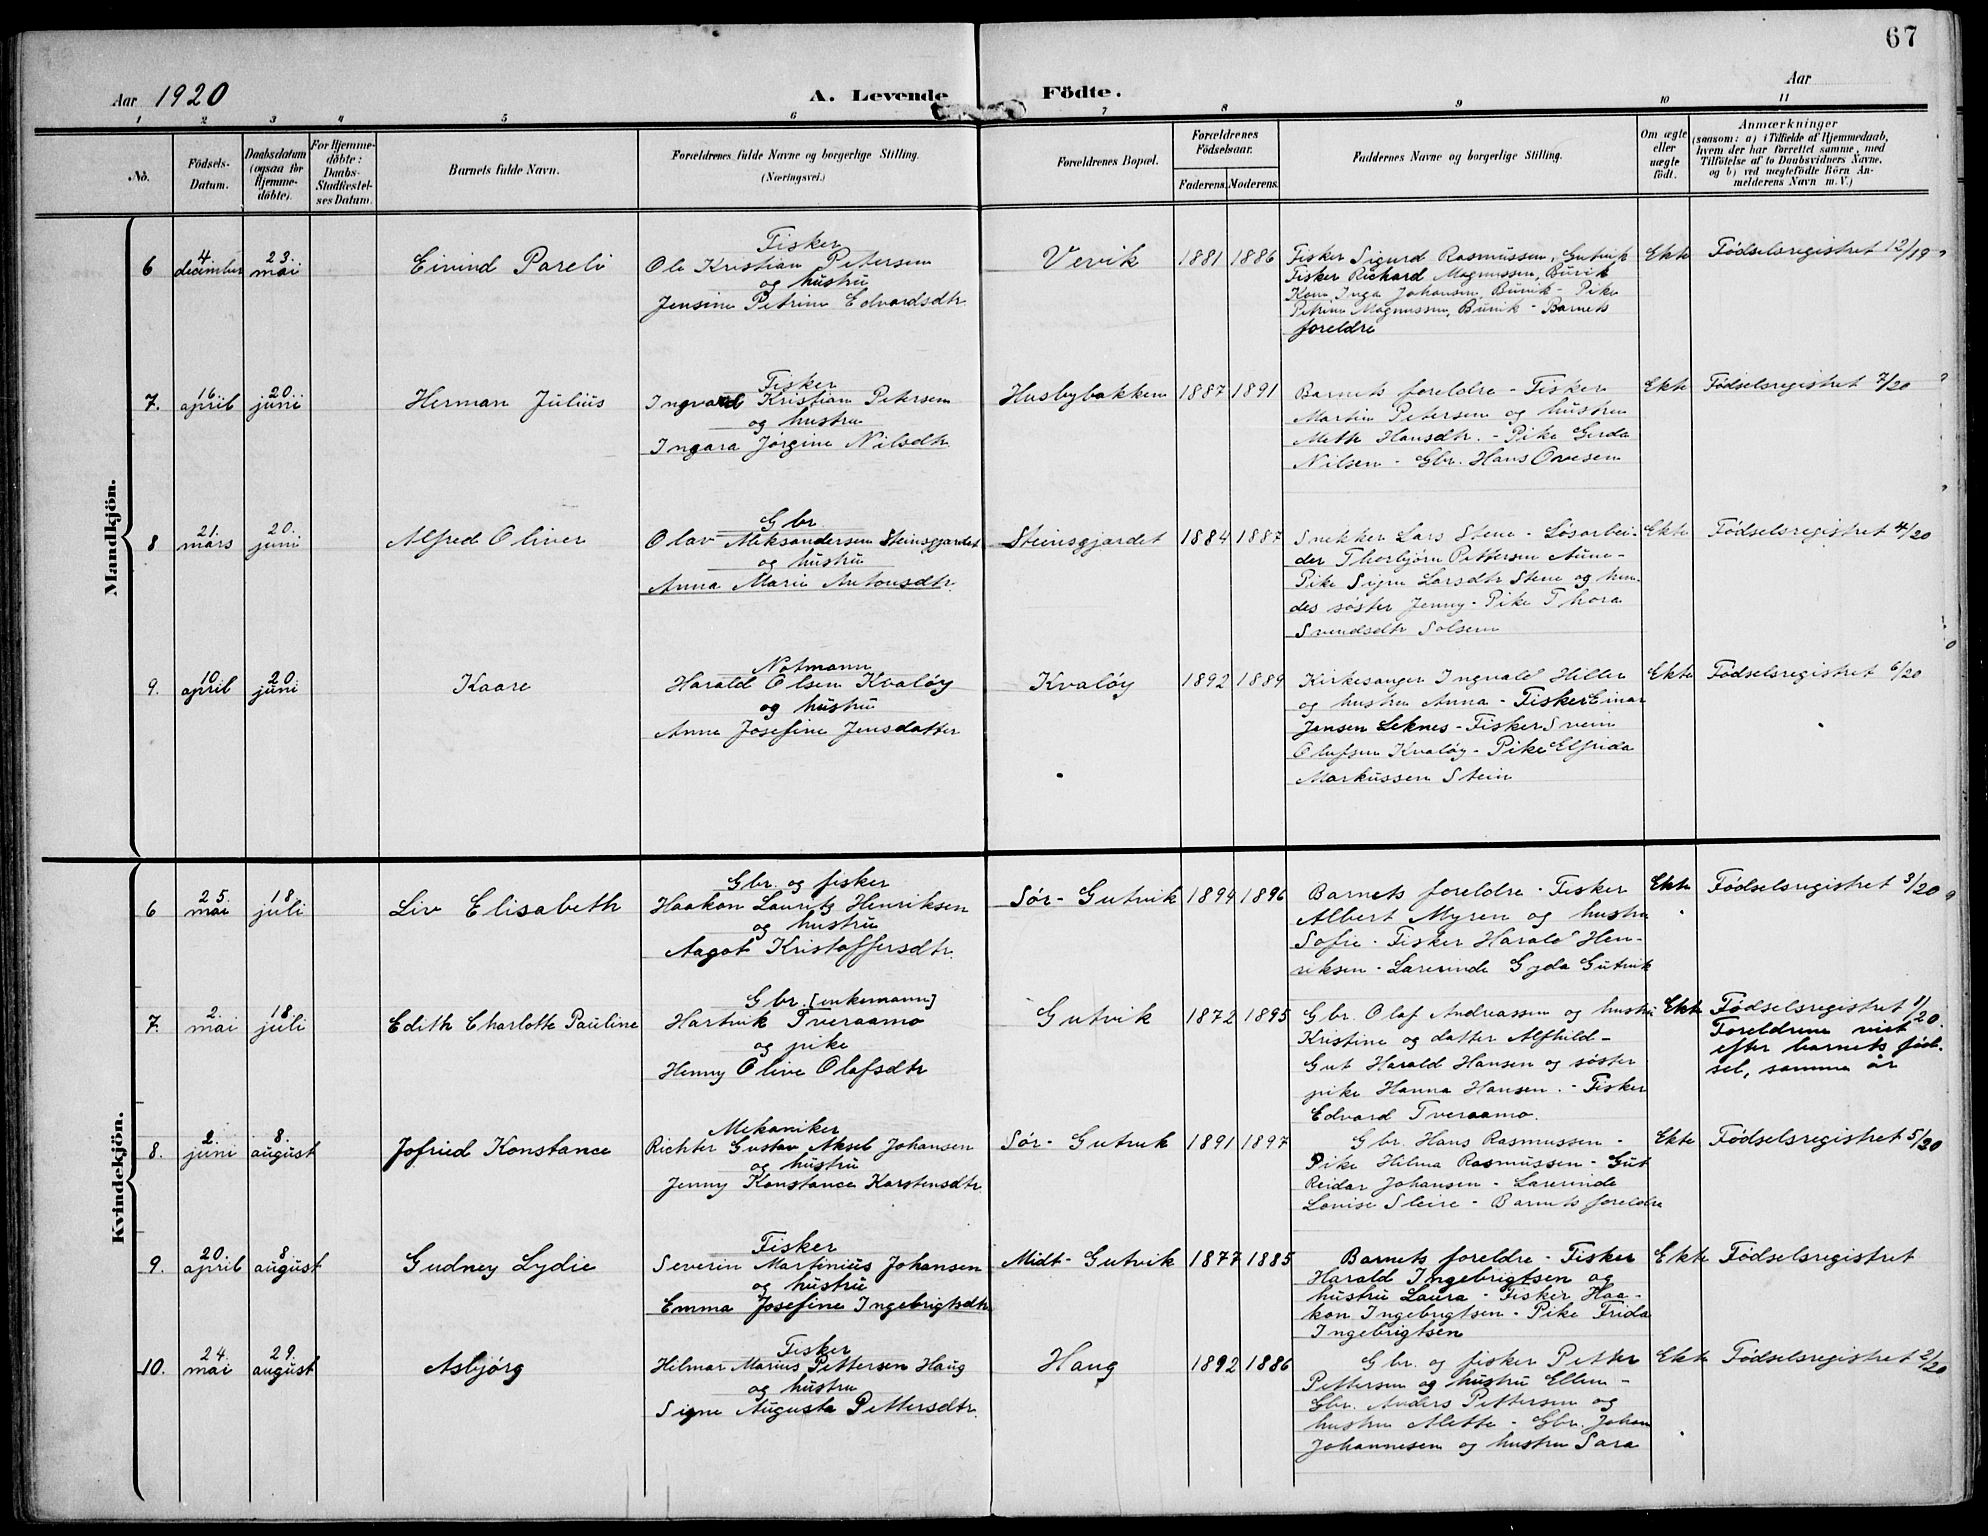 67
Aar 1920
A. Levende
Födte.
Aar
1 2 3 4 5 6 7 8 9 10 11
No.
Födsels-
Datum.
Daabsdatum
(ogsaa for
Hjemme-
döbte).
For Hjemme-
döbte:
Daabs-
Stadfæstel-
ses Datum.
Barnets fulde Navn.
Forældrenes fulde Navne og borgerlige Stilling.
(Næringsvei.)
Forældrenes Bopæl.
Forældrenes
Födselsaar.
Faderens. Moderens.
Faddernes Navne og borgerlig Stilling.
Om ægte
eller
uægte
födt.
Anmærkninger
(saasom: a) i Tilfælde af Hjemmedaab,
hvem der har forrettet samme, med
Tilföielse af to Daabsvidners Navne,
og b) ved uægtefödte Börn An-
melderens Navn m. V.)
Mandkjön.
6
4
december
23.
mai
Eivind Pareli
Fisker
Ole Kristian Petersen
og hustru
Jensine Petrine Edvardsdtr.
Vervik
1881 1886
Fisker Sigurd Rasmussen, Gutvik
Fisker Richard Magnussen, Burik
Kone Inga Johansen, Burik - Pike
Petrine Magnussen, Burik - Barnets
foreldre
Ekte
Fødselsregistret 12/19
7.
16.
april
20.
juni
Herman Julius
Fisker
Ingvald Kristian Petersen
og hustru
Ingara Jørgine Nilsdtr.
Husbybakken
1887 1891
Barnets foreldre - Fisker
Martin Petersen og hustru
Mette Hansdtr. - Pike Gerda
Nilsen - Gbr. Hans Ovesen
Ekte
Fødselsregistret 7/20
8
21.
mars
20.
juni
Alfred Oliver
Gbr
Olav Aleksandersen Steinsgjardet
og hustru
Anna Marie Antonsdtr.
Steinsgjardet
1884 1887
Snekker Lars Stene - Løsarbei-
der Thorbjørn Pettersen Aune -
Pike Signe Larsdtr Stene og hen-
des søster Jenny - Pike Thora
Svendsdtr Solsem
Ekte
Fødselsregistret 4/20
9.
10.
april
20.
juni
Kaare
Notmann
Harald Olsen Kvaløy
og hustru
Anne Josefine Jensdatter
Kvaløy
1892 1889
Kirkesanger Ingvald Hiller
og hustru Anna - Fisker Einar
Jensen Leknes - Fisker Svein
Olufsen Kvaløy - Pike Elfrida
Markussen Stein
Ekte
Fødselsregistret 6/20
Kvindekjön.
6
25.
mai
18.
juli
Liv Elisabeth
Gbr. og fisker
Haakon Lauritz Henriksen
og hustru
Aagot Kristoffersdtr.
Sør-Gutvik
1894 1896
Barnets foreldre - Fisker
Albert Myren og hustru
Sofie - Fisker Harald Hen-
riksen - Lærerinde Gyda Gutvik
Ekte
Fødselsregistret 3/20
7.
2.
mai
18.
juli
Edith Charlotte Pauline
Gbr. [enkemann]
Hartvik Tveraamo
og pike
Henny Olive Olafsdtr
Gutvik
1872 1895
Gbr. Olaf Andreassen og hustru
Kristine og datter Alfhild -
Gut Harald Hansen og søster
pike Hanna Hansen. - Fisker
Edvard Tveraamo.
Ekte
Fødselsregistret 1/20.
Foreldrene viet
efter barnets fød-
sel, samme år
8.
2.
juni
8.
august
Jofried Konstance
Mekaniker
Richter Gustav Aksel Johansen
og hustru
Jenny Konstance Karstensdtr.
Sør-Gutvik
1891 1897
Gbr. Hans Rasmussen -
Pike Hilma Rasmussen - Gut
Reidar Johansen - Lærerinde
Lovise Sleire - Barnets foreldre
Ekte
Fødselsregistret 5/20
9.
20.
april
8.
august
Gudney Lydie
Fisker
Severin Martinius Johansen
og hustru
Emma Josefine Ingebrigtsdtr
Midt-Gutvik
1877 1885
Barnets foreldre - Fisker
Harald Ingebrigtsen og
hustru Laura - Fisker Haa-
kon Ingebrigtsen - Pike Frida
Ingebrigtsen
Ekte
Fødselsregistret
10.
24.
mai
29.
august
Asbjørg
Fisker
Hilmar Marius Pettersen Haug
og hustru
Signe Augusta Pettersdtr.
Haug
1892 1886
Gbr. og fisker Petter
Pettersen og hustru Ellen -
Gbr. Anders Pettersen og
hustru Alette - Gbr. Johan
Johannesen og hustru Sara
Ekte
Fødselsregistret 2/20